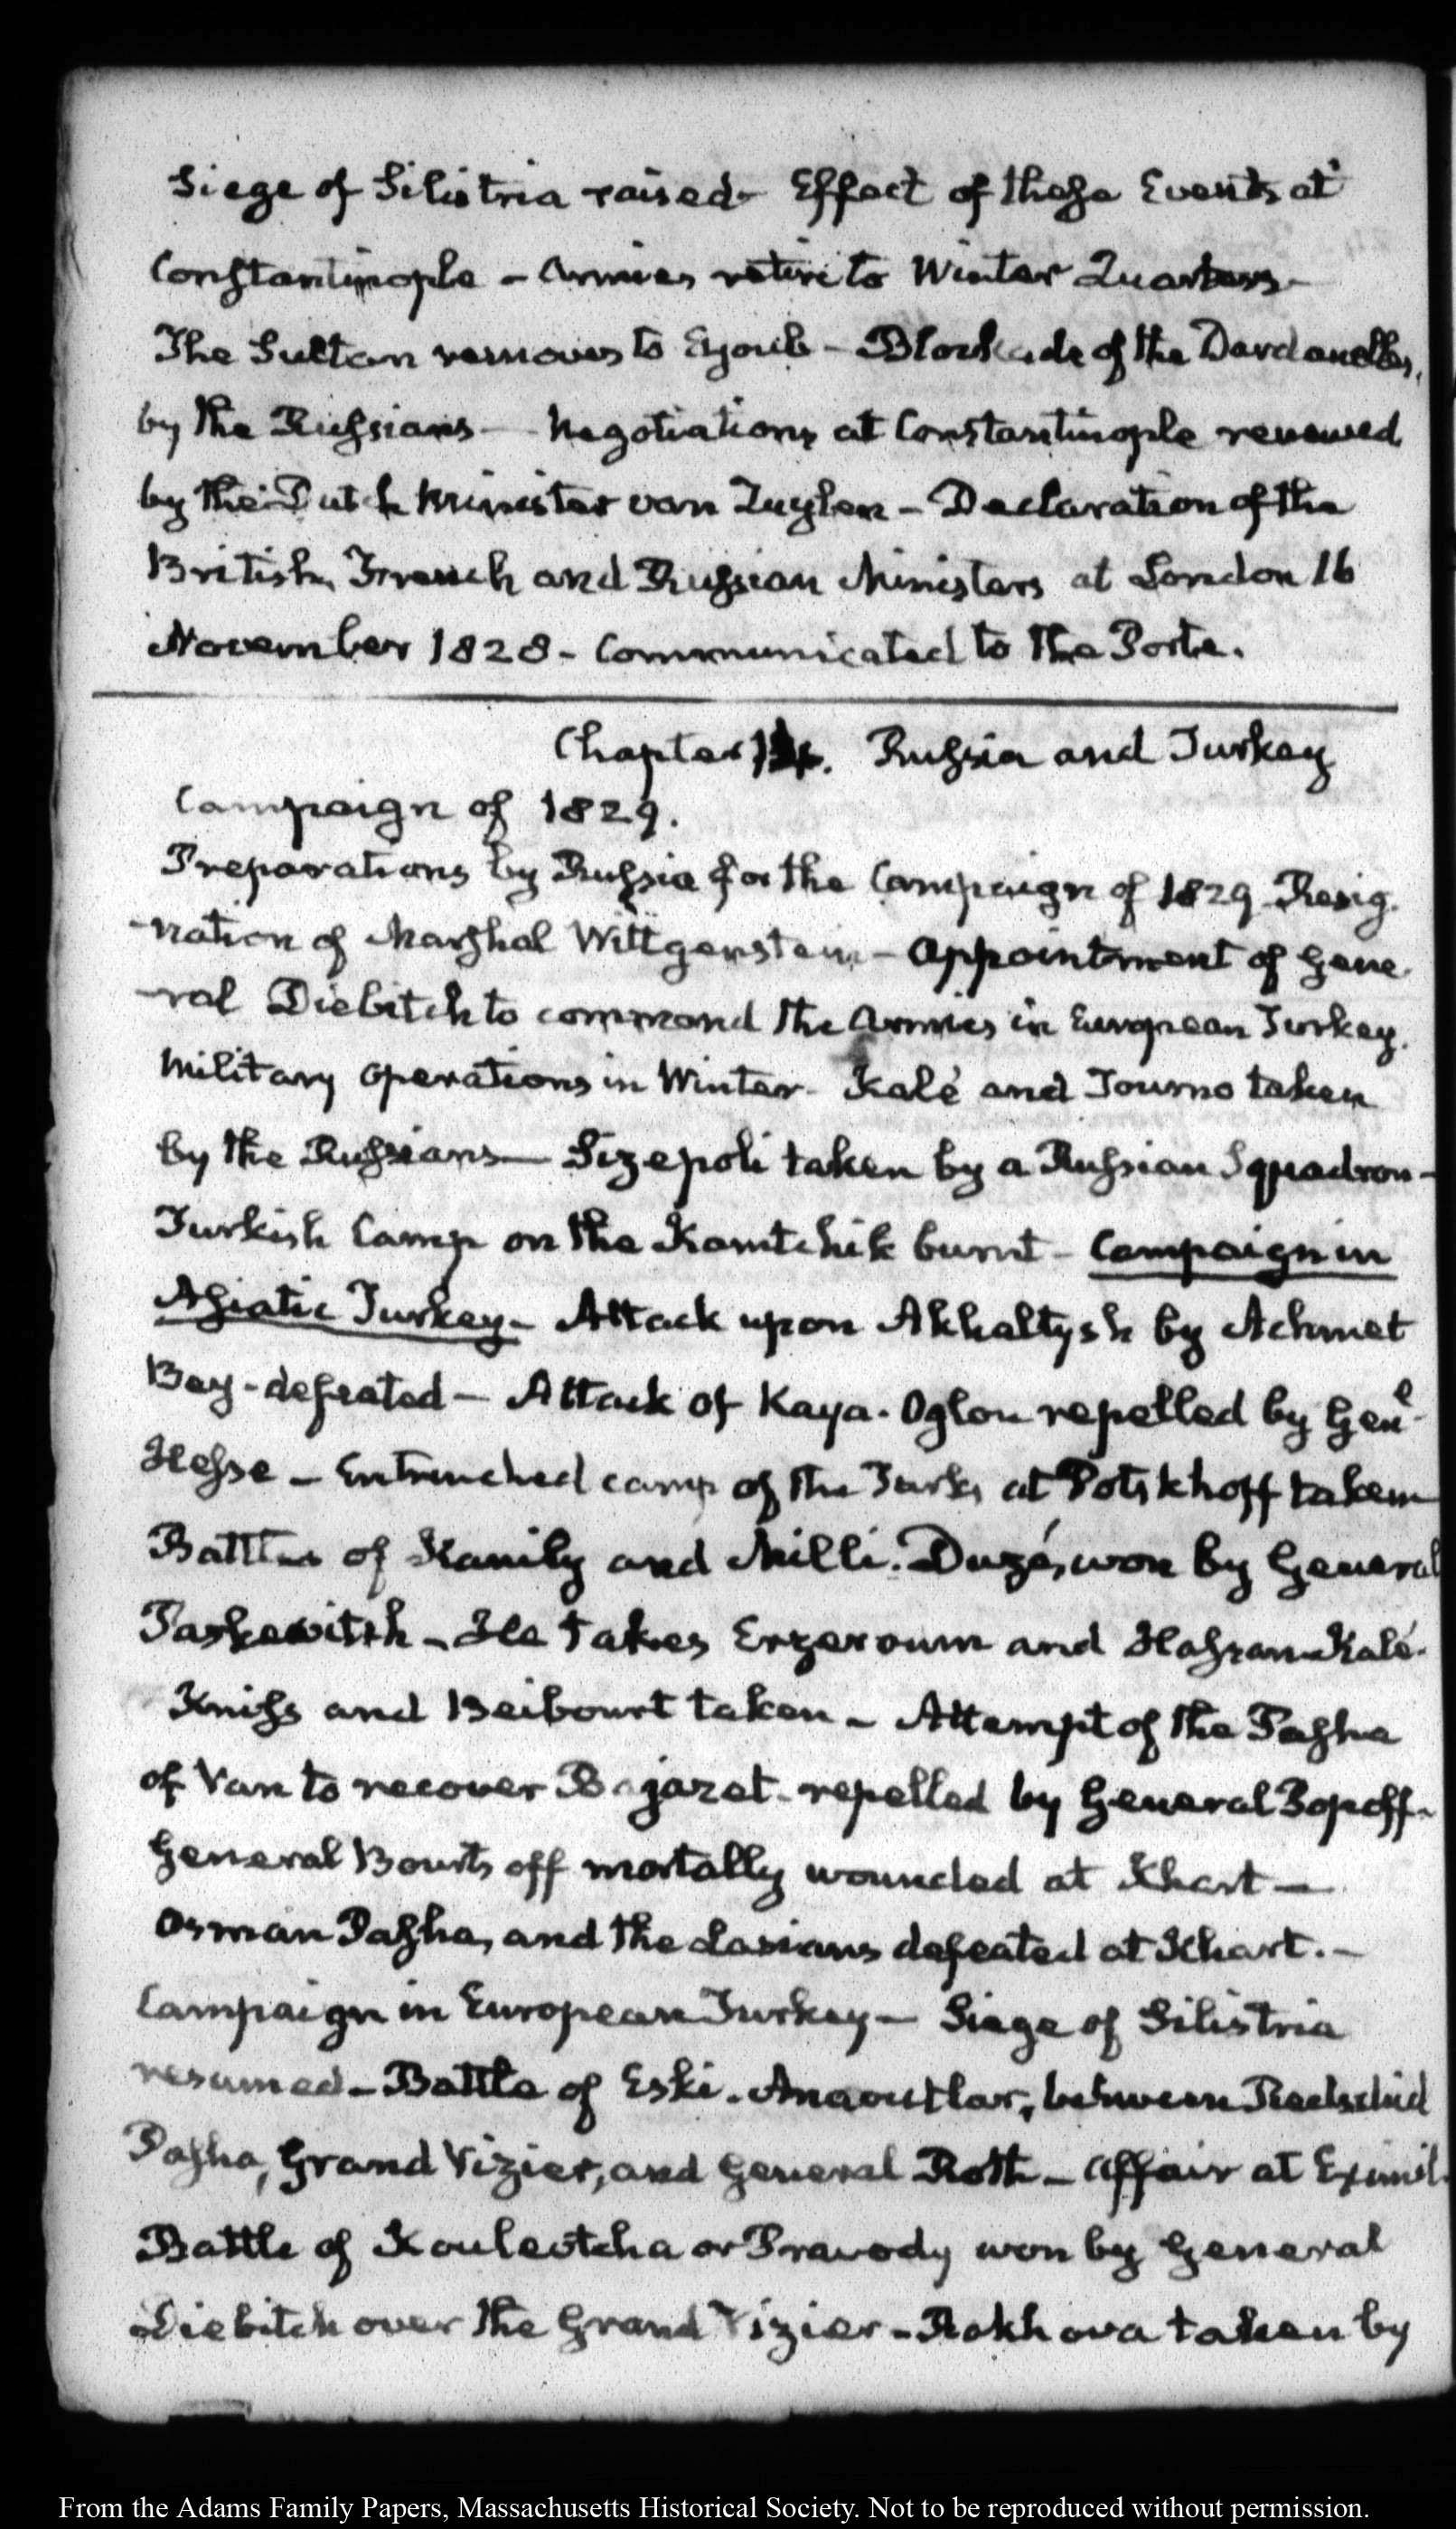 Siege of Silistria raised - Effect of these Events at
Constantinople - Armies retire to Winter Quarters -
The Sultan removes to Eyoub - Blockade of the Dardanelles,
by the Russians - Negotiations at Constantinople renewed
by the Dutch Minister van Zuylen - Declaration of the
British, French and Russian Ministers at London 16
November 1828 - Communicated to the Porte.
Chapter Russia and Turkey
Campaign of 1829.
Preparations by Russia for the Campaign of 1829 - Resig-
-nation of Marshal Wittgenstein - Appointment of Gene-
-ral Diebitch to command the Armies in European Turkey.
Military operations in Winter - Kalé and Tourno taken
by the Russians - Sizepoli taken by a Russian Squadron -
Turkish Camp on the Kamtchik burnt - Campaign in
Asiatic Turkey - Attack upon Akhaltysh by Achmet
Bey - defeated - Attack of Kaya-Oglou repelled by Genl
Hesse - Entrenched camp of the Turks at Potskhoff taken
Battles of Kanily and Milli-Duzé, won by General
Paskewitch - He takes Erzeroum and Hassan-Kalé.
Kniss and Beibourt taken - Attempt of the Pasha
of Van to recover Bajazet - repelled by General Popoff -
General Bourtsoff mortally wounded at Khart -
Osman Pasha, and the Lasians defeated at Khart. -
Campaign in European Turkey - Siege of Silistria
resumed - Battle of Eski-Arnaoutlar, between Redschid
Pasha, Grand Vizier, and General Roth - Affair at Eximil
Battle of Koulevtcha or Pravody won by General
Diebitch over the Grand Vizier - Rakhova taken by
From the Adams Family Papers, Massachusetts Historical Society. Not to be reproduced without permission.